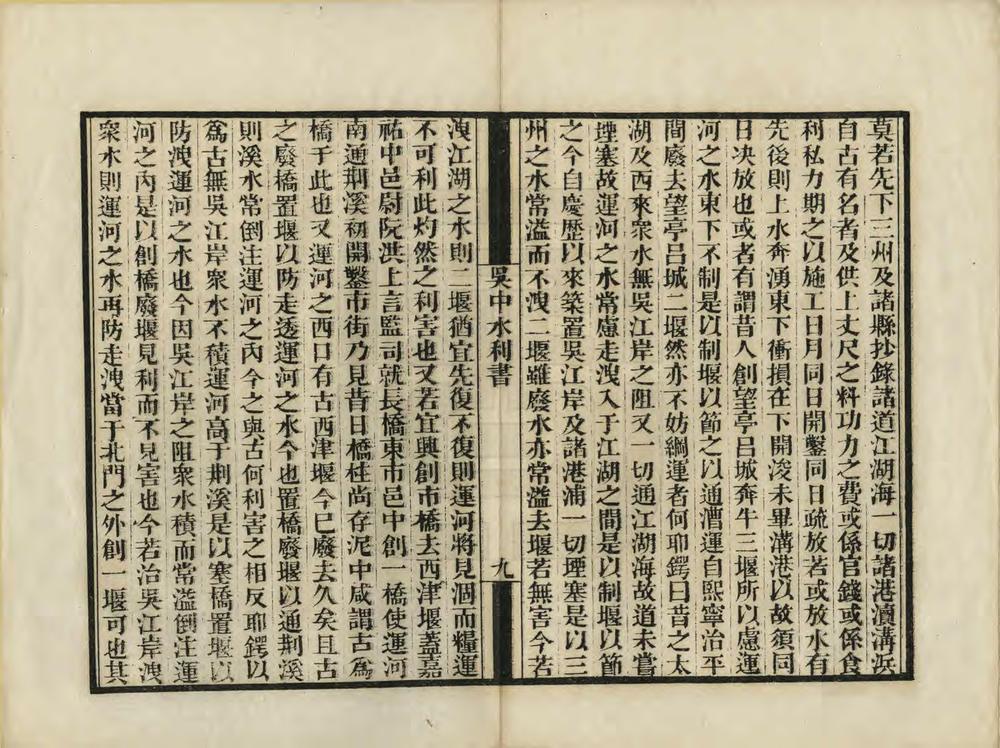 莫若先下三州及諸縣抄錄諸道江湖海一切諸港瀆溝浜
自古有名者及供上丈尺之料功力之費或係官錢或係食
利私力期之以施工日月同日開鑿同日疏放若或放水有
先後則上水奔湧東下衝損在下開浚未畢溝港以故須同
日决放也或者有謂昔人創望亭吕城奔牛三堰所以慮運
河之水東下不制是以制堰以節之以通漕運自熙寧治平
間廢去望亭吕城二堰然亦不妨綱運者何耶鍔曰昔之太
湖及西來衆水無吳江岸之阻又一切通江湖海故道未嘗
堙塞故運河之水常慮走洩入于江湖之間是以制堰以節
之今自慶歷以來築置吳江岸及諸港浦一切堙塞是以三
州之水常溢而不洩二堰雖廢水亦常溢去堰若無害今若
吳中水利書
九
洩江湖之水則二堰猶宜先復不復則運河將見涸而糧運
不可利此灼然之利害也又若宜興創市橋去西津堰蓋嘉
祐中邑尉阮洪上言監司就長橋東市邑中創一橋使運河
南通荆溪初開鑿市街乃見昔日橋柱尚存泥中咸謂古爲
橋于此也又運河之西口有古西津堰今已廢去久矣且古
之廢橋置堰以防走透運河之水今也置橋廢堰以通荆溪
則溪水常倒注運河之內今之與古何利害之相反耶鍔以
爲古無吳江岸衆水不積運河高于荆溪是以塞橋置堰以
防洩運河之水也今因吳江岸之阻衆水積而常溢倒注運
河之內是以創橋廢堰見利而不見害也今若治吳江岸洩
衆水則運河之水再防走洩當于北門之外創一堰可也其